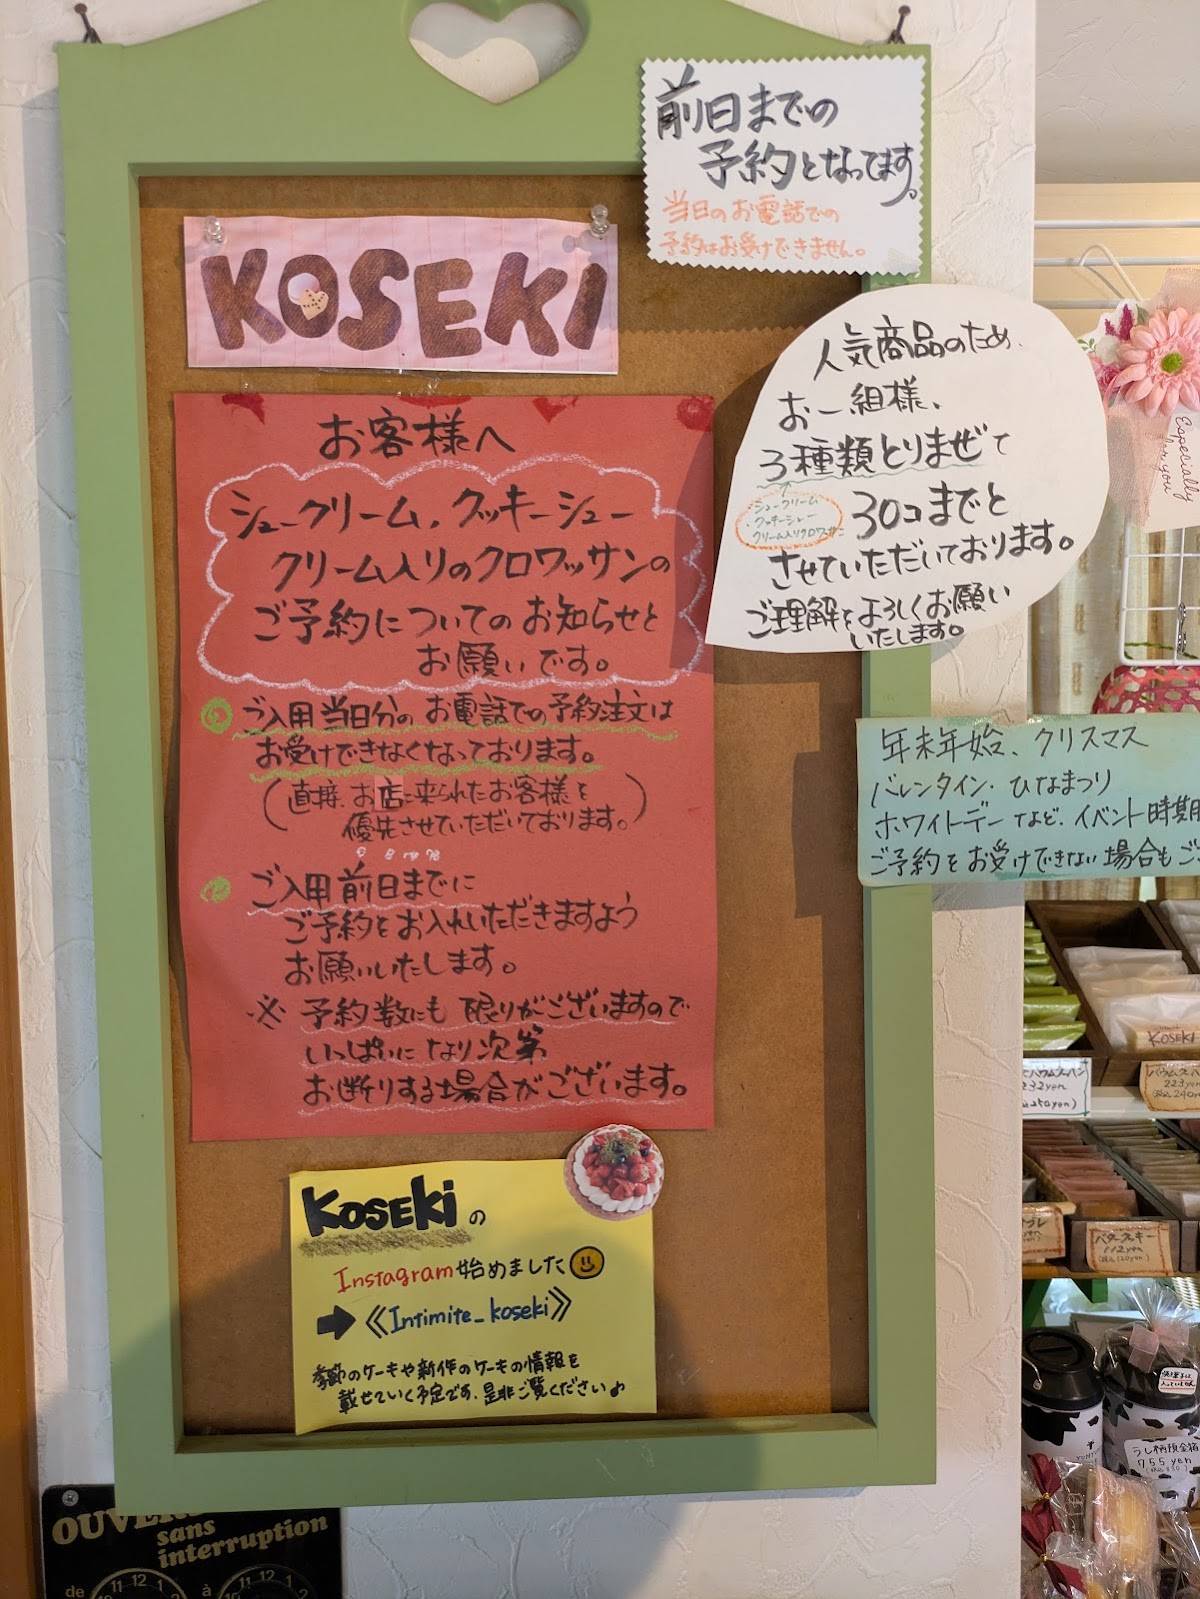 前日までの
予約となってます。
当日のお電話での
予約はお受けできません。
KOSEKI
人気商品のため、
お一組様、
3種類とりまぜて
・シュークリーム
・クッキーシュー
クリーム入りクロワッサン
30コまでと
させていただいております。
ご理解をよろしくお願い
いたします。
お客様へ
シュークリーム、クッキーシュー
クリーム入りのクロワッサンの
ご予約についてのお知らせと
お願いです。
ご入用当日分のお電話での予約注文は
お受けできなくなっております。
(直接、お店に来られたお客様を
優先させていただいております。)
ご入用前日までに
ご予約をお入れいただきますよう
お願いいたします。
※予約数にも限りがございますので
いっぱいになり次第
お断りする場合がございます。
年末年始、クリスマス
バレンタイン・ひなまつり
ホワイトデーなど、イベント時期
ご予約をお受けできない場合もご
KOSEKIの
Instagram始めました
➡《Intimite_koseki》
季節のケーキや新作のケーキの情報を
載せていく予定です。是非ご覧ください♪
Especially
for you
KOSEKI
バウムクーヘン
232yen
250yen)
バウムクーヘン
223yen
240yen
バタークッキー
112yen
うし柄預金箱
755yen
OUVER
sans
interruption
de
11 12 1
à
11 12 1